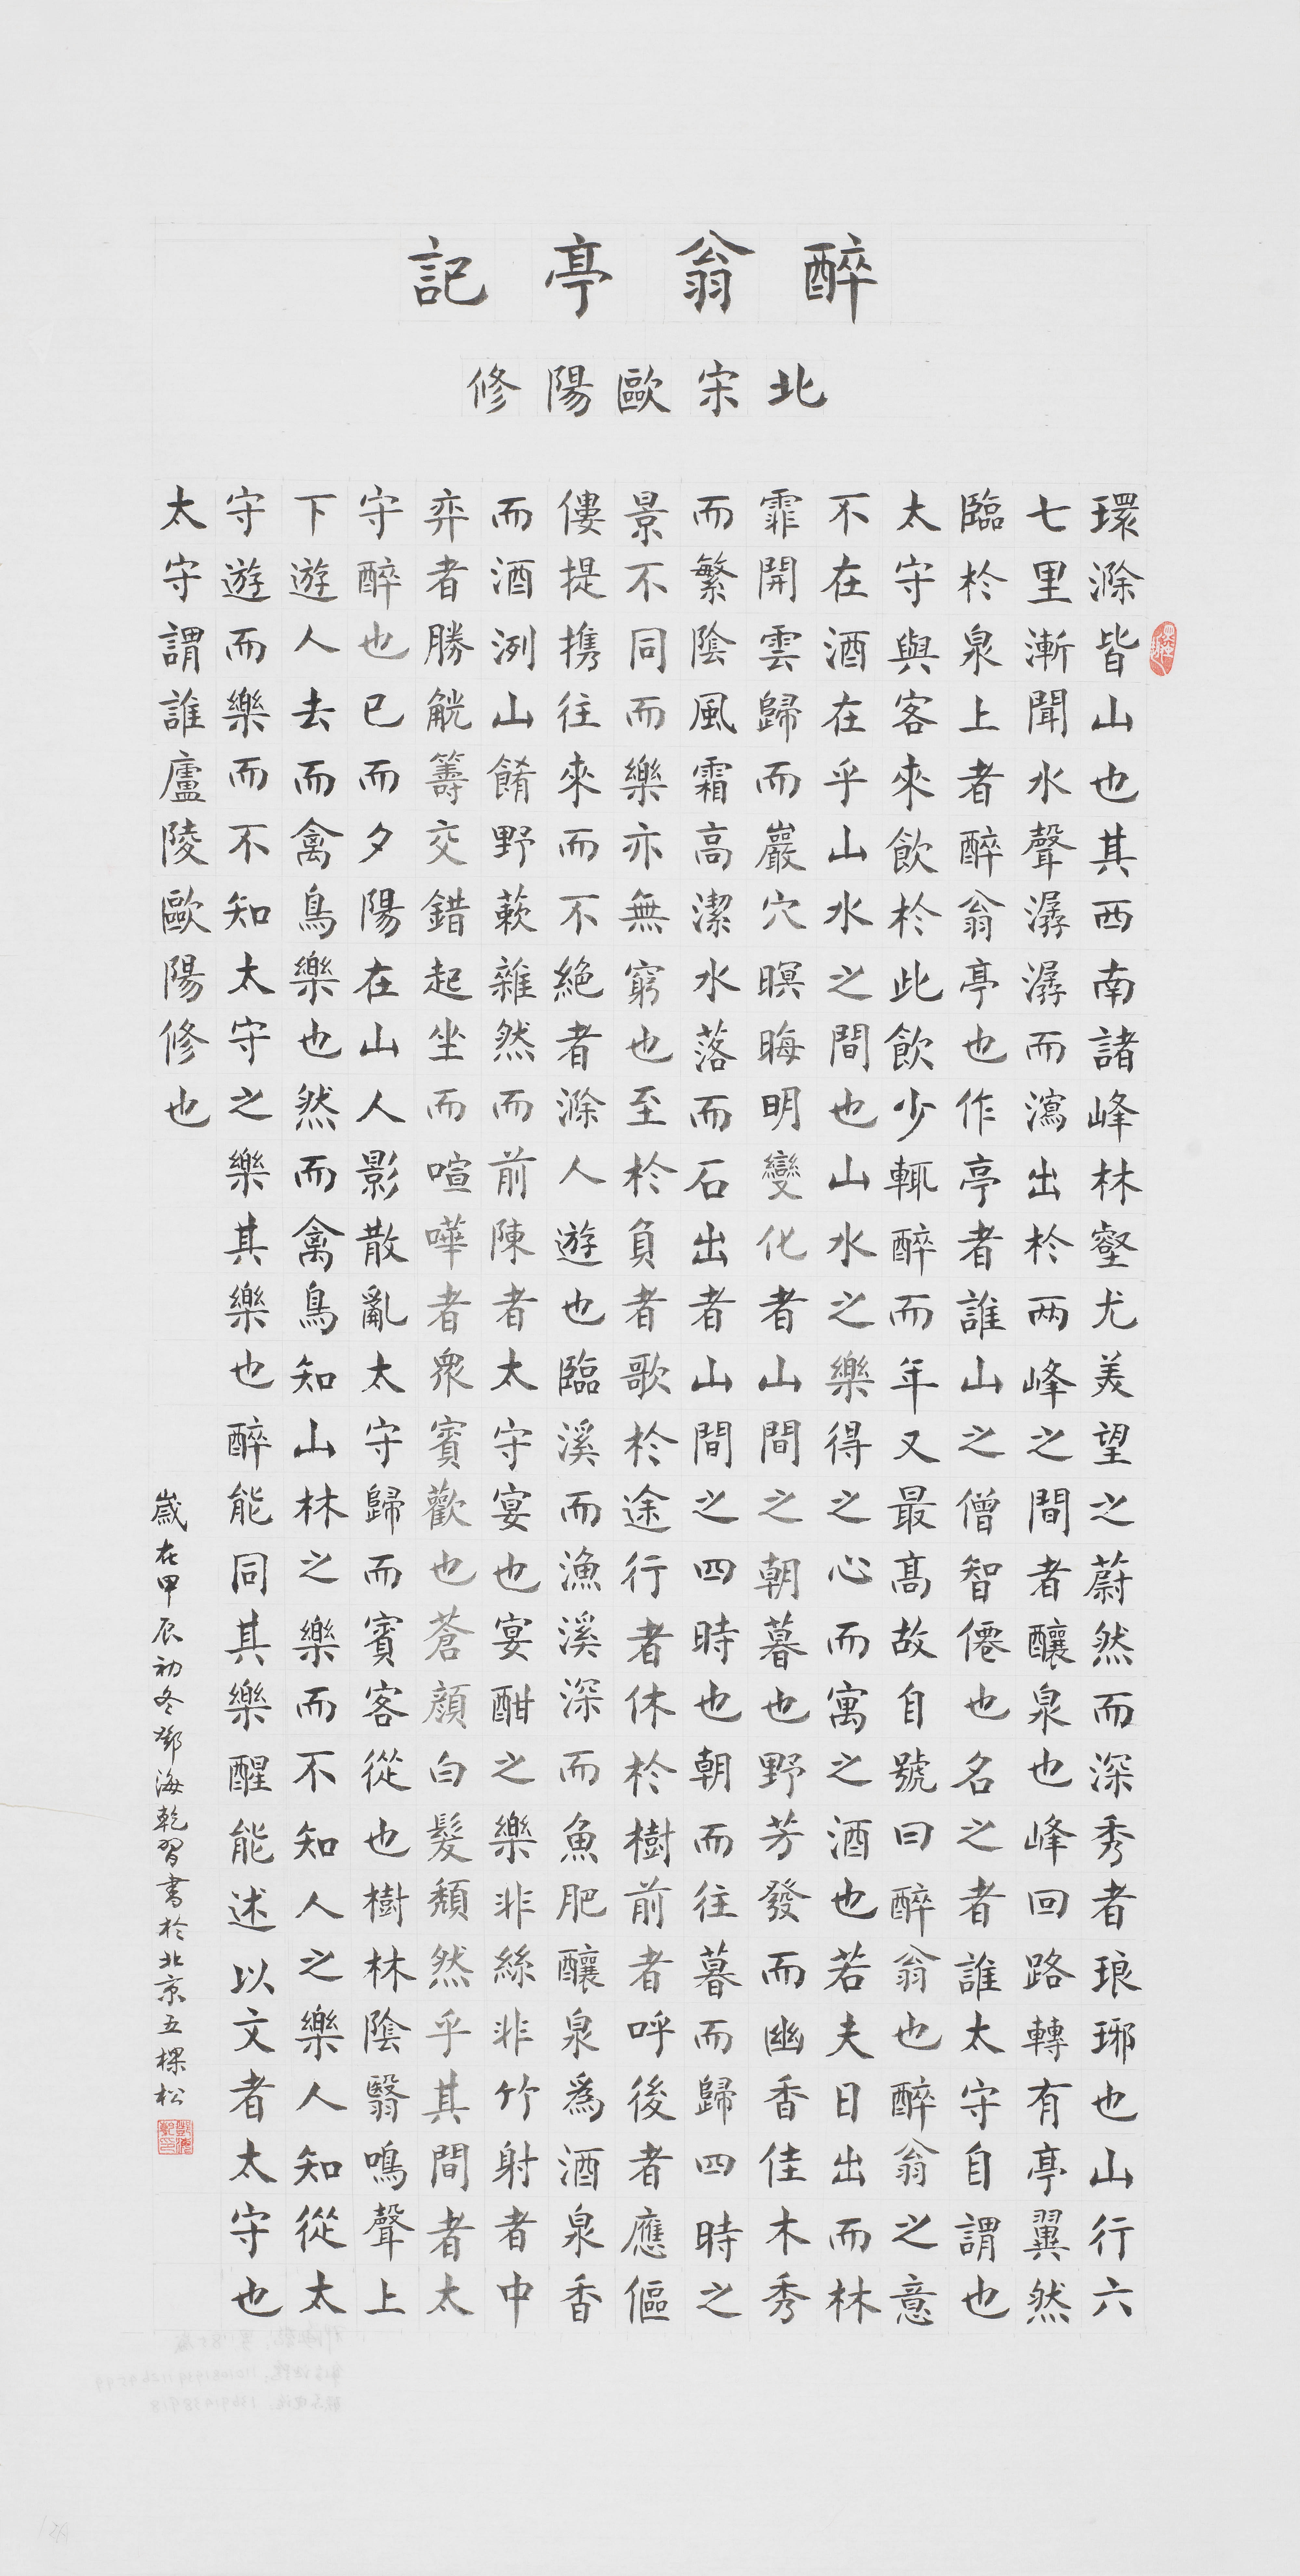 醉翁亭記
北宋歐陽修
環滁皆山也其西南諸峰林壑尤美望之蔚然而深秀者琅琊也山行六
七里漸聞水聲潺潺而瀉出於兩峰之間者釀泉也峰回路轉有亭翼然
臨於泉上者醉翁亭也作亭者誰山之僧智僊也名之者誰太守自謂也
太守與客來飲於此飲少輒醉而年又最高故自號曰醉翁也醉翁之意
不在酒在乎山水之間也山水之樂得之心而寓之酒也若夫日出而林
霏開雲歸而巖穴暝晦明變化者山間之朝暮也野芳發而幽香佳木秀
而繁陰風霜高潔水落而石出者山間之四時也朝而往暮而歸四時之
景不同而樂亦無窮也至於負者歌於途行者休於樹前者呼後者應傴
僂提攜往來而不絶者滁人遊也臨溪而漁溪深而魚肥釀泉爲酒泉香
而酒洌山餚野蔌雜然而前陳者太守宴也宴酣之樂非絲非竹射者中
弈者勝觥籌交錯起坐而喧嘩者衆賓歡也蒼顔白髮頹然乎其間者太
守醉也已而夕陽在山人影散亂太守歸而賓客從也樹林陰翳鳴聲上
下遊人去而禽鳥樂也然而禽鳥知山林之樂而不知人之樂人知從太
守遊而樂而不知太守之樂其樂也醉能同其樂醒能述以文者太守也
太守謂誰廬陵歐陽修也
歲在甲辰初冬鄧海乾習書於北京五棵松